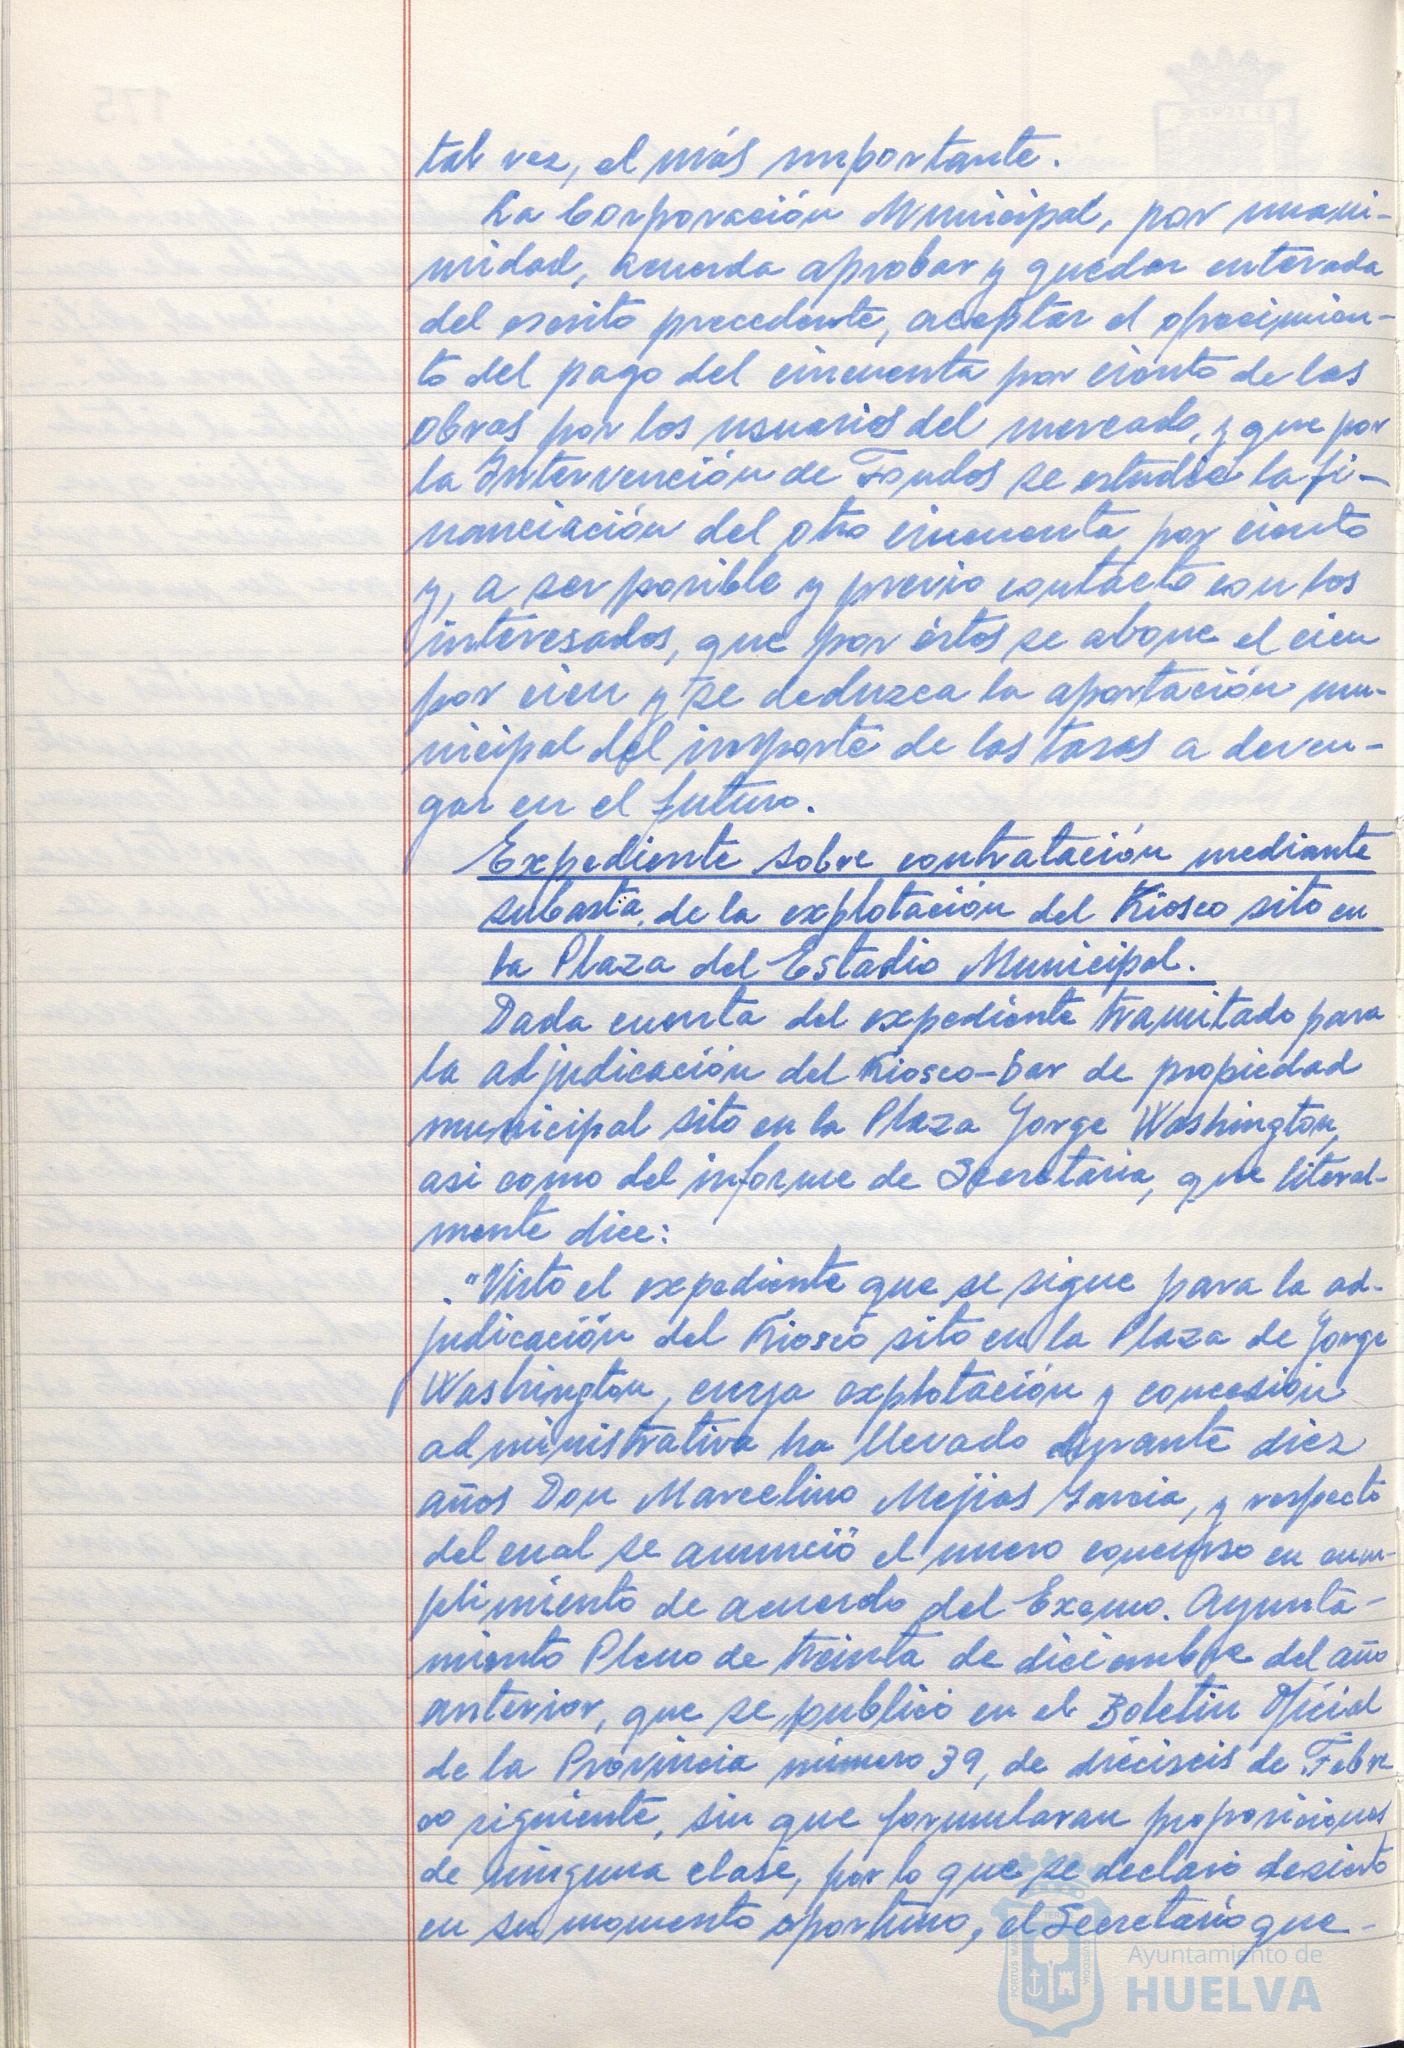 tal vez, el más importante.
La Corporación Municipal, por unani-
midad, acuerda aprobar y quedar enterada
del escrito precedente, aceptar el ofrecimien-
to del pago del cincuenta por ciento de las
obras por los usuarios del mercado, y que por
la Intervención de Fondos se estudie la fi-
nanciación del otro cincuenta por ciento
y, a ser posible y previo contacto con los
interesados, que por éstos se abone el cien
por cien y se deduzca la aportación mu-
nicipal del importe de las tasas a deven-
gar en el futuro.
Expediente sobre contratación mediante
subasta de la explotación del Kiosco sito en
la Plaza del Estadio Municipal.
Dada cuenta del expediente tramitado para
la adjudicación del Kiosco-bar de propiedad
municipal sito en la Plaza Jorge Washington,
asi como del informe de Secretaria, que literal-
mente dice:
"Visto el expediente que se sigue para la ad-
judicación del Kiosco sito en la Plaza de Jorge
Washington, cuya explotación y concesión
administrativa ha llevado durante diez
años Don Marcelino Mejias Garcia, y respecto
del cual se anunció el nuevo concurso en cum-
plimiento de acuerdo del Excmo. Ayunta-
miento Pleno de treinta de diciembre del año
anterior, que se publicó en el Boletin Oficial
de la Provincia número 39, de dieciseis de Febre
ro siguiente, sin que formularan proposiciones
de ninguna clase, por lo que se declaró desierto
en su momento oportuno, el Secretario que-
Ayuntamiento de
HUELVA